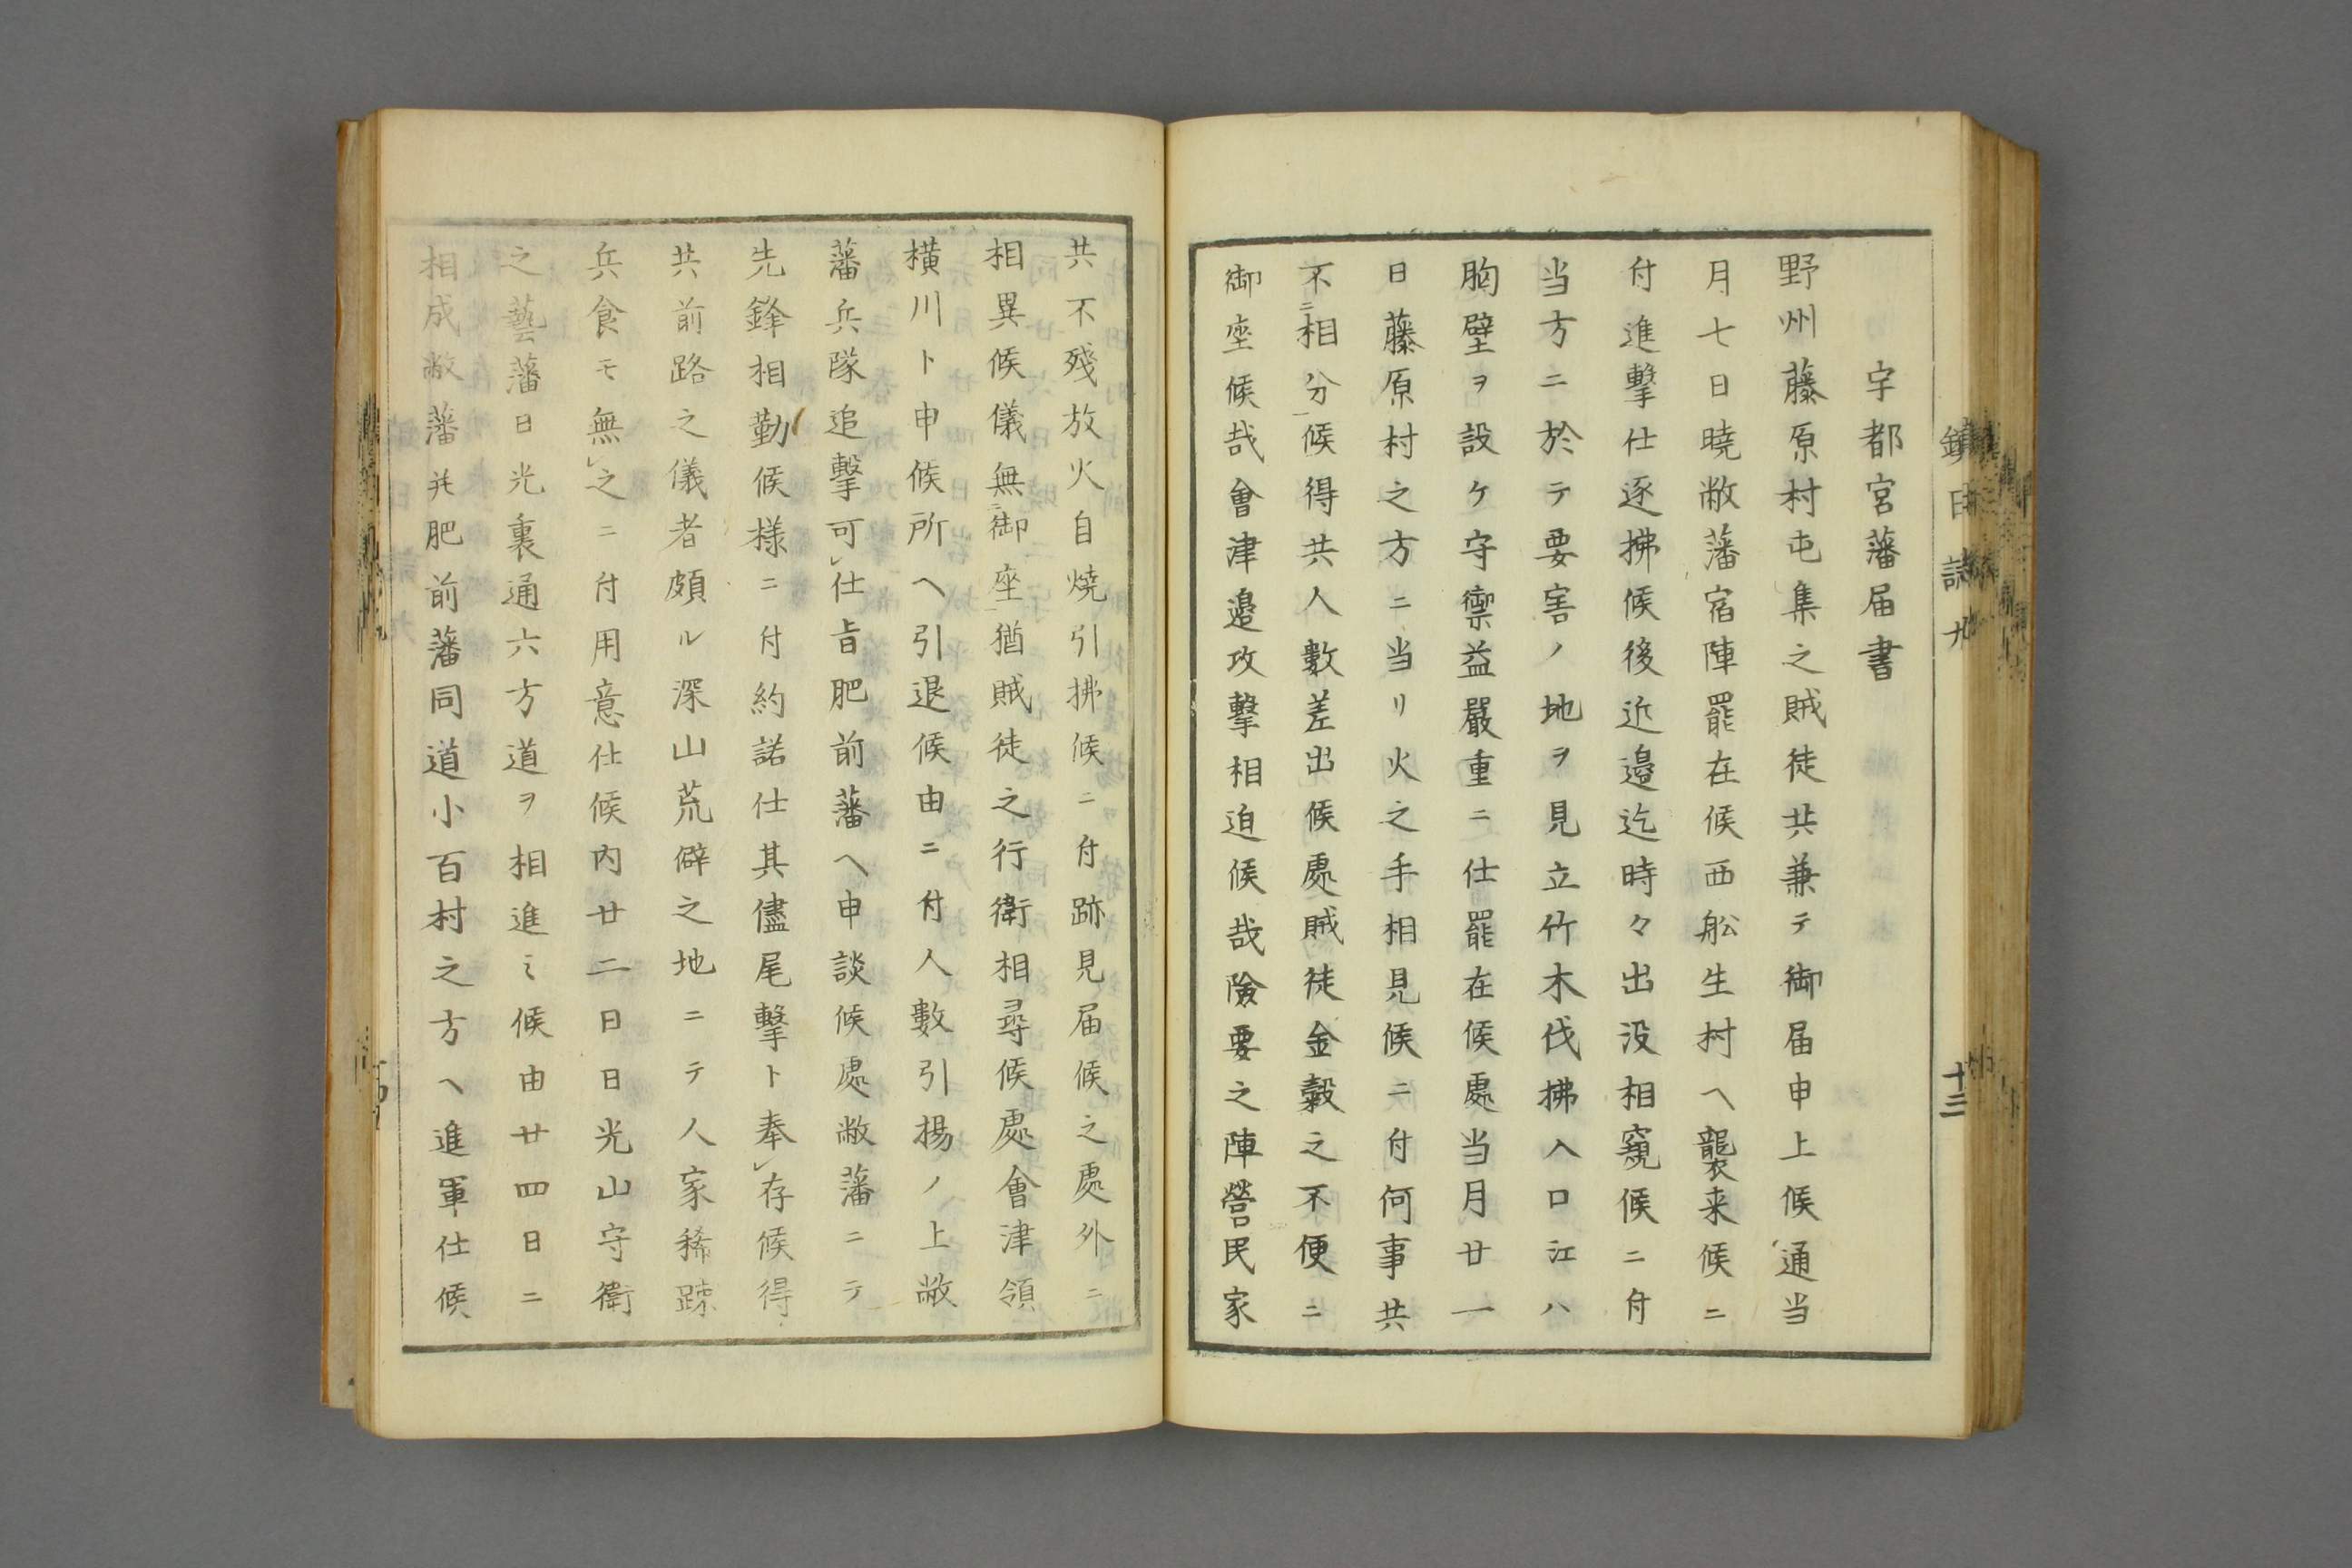 鎮日誌九
十三
宇都宮藩届書
野州藤原村屯集之賊徒共兼テ御届申上候通当
月七日暁敝藩宿陣罷在候西舩生村ヘ襲来候ニ
付進擊仕逐拂候後近邉迄時々出没相窺候ニ付
当方ニ於テ要害ノ地ヲ見立竹木伐拂入口江ハ
胸壁ヲ設ケ守禦益嚴重ニ仕罷在候處当月廿一
日藤原村之方ニ当リ火之手相見候ニ付何事共
不㆓相分㆒候得共人數差出候處賊徒金穀之不便ニ
御座候哉會津邉攻擊相迫候哉險要之陣營民家
共不殘放火自燒引拂候ニ付跡見届候之處外ニ
相異候儀無㆓御座㆒猶賊徒之行衛相尋候處會津領
横川ト申候所ヘ引退候由ニ付人數引揚ノ上敝
藩兵隊追擊可㆑仕旨肥前藩ヘ申談候處敝藩ニテ
先鋒相勤候様ニ付約諾仕其儘尾擊ト奉㆑存候得
共前路之儀者頗ル深山荒僻之地ニテ人家稀踈
兵食モ無㆑之ニ付用意仕候内廿二日日光山守衛
之藝藩日光裏通六方道ヲ相進ミ候由廿四日ニ
相成敝藩并肥前藩同道小百村之方ヘ進軍仕候